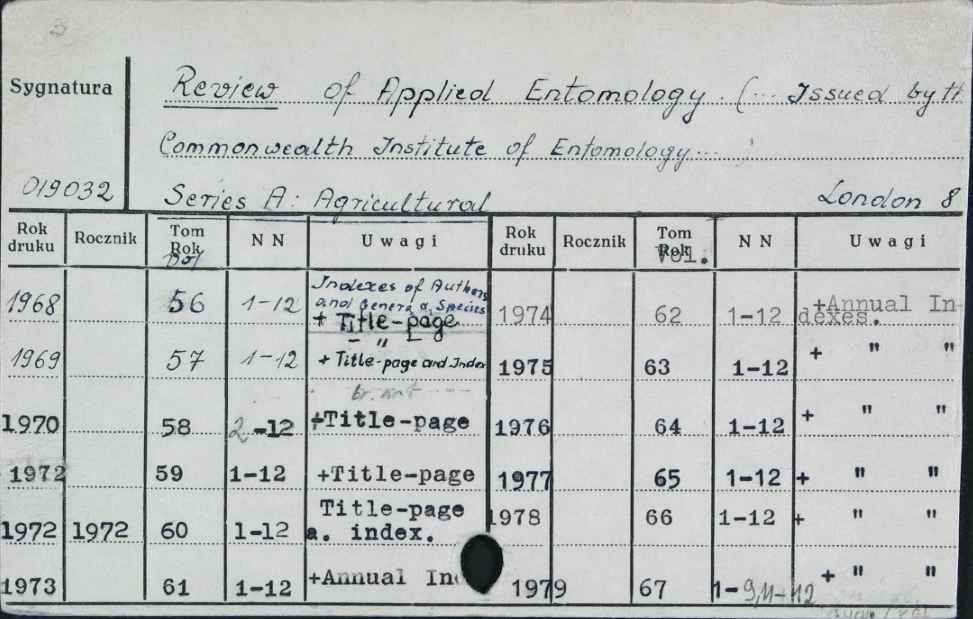 Sygnatura
Review of Applied Entomology. (... Issued by th
Commonwealth Institute of Entomology...
019032
Series A: Agricultural London 8
Rok druku Rocznik Tom Rok Vol NN Uwagi Rok druku Rocznik Tom Rok Vol. NN Uwagi
1968 56 1-12 Indexes of Authors and Genera a. Species + Title-page
1974 62 1-12 +Annual Indexes.
1969 57 1-12 + Title-page and Index
1975 63 1-12 + " "
1970 58 2-12 +Title-page
1976 64 1-12 + " "
1972 59 1-12 +Title-page
1977 65 1-12 + " "
1972 1972 60 1-12 Title-page a. index.
1978 66 1-12 + " "
1973 61 1-12 +Annual In
1979 67 1-9,11-12 + " "